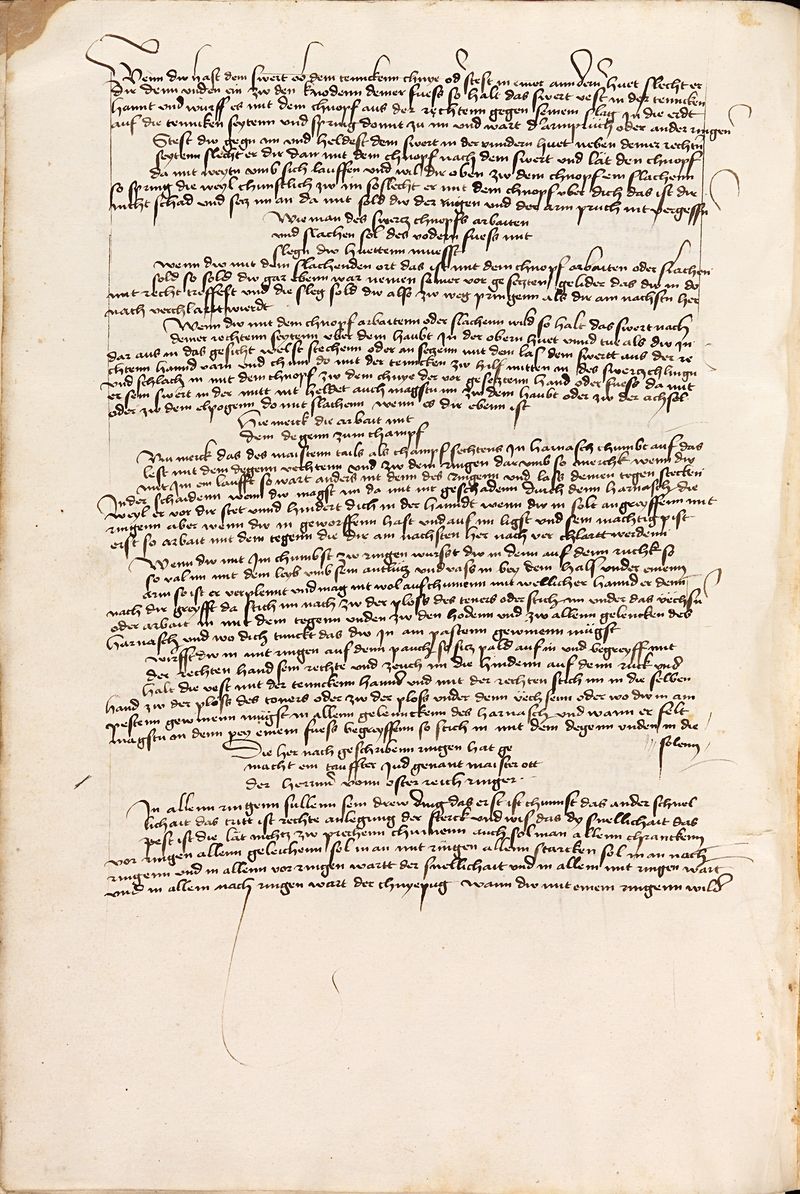 Wenn dw hast dem swert vo dem tennckenn chnye od stest in einer anndern huet slecht er
dir denn unden ein zw den knodenn deiner fuess so halt das swert vest in der tenncken
hannt und wurff es mit dem chnopf aus der rechtenn gegen seinem slag in die erdt
auf die tenncken seytenn und spring domit zu im und wart d armpruch oder ander ringen
Stest dw gegn im und heldest dem swert in der undern huet neben deiner rechtn
seytenn slecht er dir dan mit dem chnopf nach dem swert und lat den chnopf
da mit weytn umb sich lauffen und wil dir oben zw dem chnopf ein slachenn
so spring die weyl chunstlich zw im so slecht er mit dem chnopf uber dich das ist dir
nicht schad und setz im an da mit sold dw der ringen und der arm pruch nit vergessn
Wie man des swertz chnopfs arbaiten
und slachen sol des vodern fuess mit
slegn dw huettenn muesst
Wenn dw mit dem slachenden ort das ist mit dem chnopf arbaiten oder slachen
sold so sold dw gar ebenn war nemen seiner vor gesetzten gelider das dw in do
mit recht treffest und die sleg sold dw also zw weg pringenn als dir am nachstn her
nach verchlartt wierdt
Wenn dw mit dem chnopf arbaitenn oder slachenn wild so halt das swert nach
deiner rechtenn seytenn uber dem haubt in der obern huet unnd tue als dw in
dar aus in das gesicht welst stechenn oder an seczenn mit den las dem swertt aus der re
chtenn hannd varn und chum do mit der tenncken zw hilf mitten in des swertzs chlingn
und schlach in mit dem chnopf zw dem chnye der vor gesetztenn hand oder fuess da mit
er sein swert in der mitt nit heldet auch magstu im zw dem haubt oder zw der achsel
oder zw dem elpogenn do mit slachenn wenn es dir ebenn ist
Hie merck die arbait mit
dem degenn zum champf
Nu merck das des maistenn tails als champf fechtens in harnasch chumbt auf das
lest mit dem degenn vechtenn und zw dem ringen dar umb so merck wenn dw
mit im ein laufst so wart anders nit denn des ringenn und lass deinen tegen stecken
in der schaidenn wenn dw magst im da mit nit geschadenn durch denn harnasch die
weyl er vor dir stet unnd hindert dich in der hanndt wenn dw in solt angreyffenn mit
ringenn aber wenn dw in geworffenn hast und auf im ligst und sein machtig pist
erst so arbait mit dem tegenn die dir am nachsten her nach ver chlartt werdenn
Wenn dw mit im chumbst zw ringen wurfst dw in denn auf denn ruchk so
so val im mit dem leyb umb sein antlutz und vass in bey dem hals under einem
arm so ist er verplennt und mag nit wol auf chumenn mit wellicher hannd er denn
nach dir greyfft da stich im nach zw der ploss des teners oder stich im under das uechsn
oder arbait in mit dem tegenn unden zw den hodenn und zw allenn gelencken des
harnasch und wo dich tunckt das dw in am pastenn gewinnenn mugst
Wirfst dw in mit ringen auf denn pauch so sitz pald auf in und begreyff mit
der rechten hand sein rechte und zeuch im die hindenn auf denn ruck und
halt die vest mit der tennckenn hannd und mit der rechten stich im in die selben
hand zw der ploss des teners oder zw der ploss under denn uechsenn oder wo dw in am
pestenn gewinnenn mugst in allenn gelennckenn des harnasch und wann er felt
magstu in denn pey einem fuess begreyffenn so stich in mit dem degenn unden in die
solenn
Die her nach geschribenn ringen hat ge
macht ein tauffter jud genant maister ott
der herrnn vonn osterreich ringer
In allenn ringenn sullenn sein drew ding das erst ist chunnst das ander schnel
lichait das tritt ist rechte anlegung der sterck und wis das dy snellichait das
pest ist die lat nichtz zw prechenn chumenn auch sol man allenn chrancken
vor ringen allenn geleichenn sol man mit ringen allenn starcken sol man nach
ringenn und in allenn vor ringen wartt der snellichait und in allenn mit ringen wart
und in allenn nach ringen wart der chnyepug wann dw mit einem ringenn wild